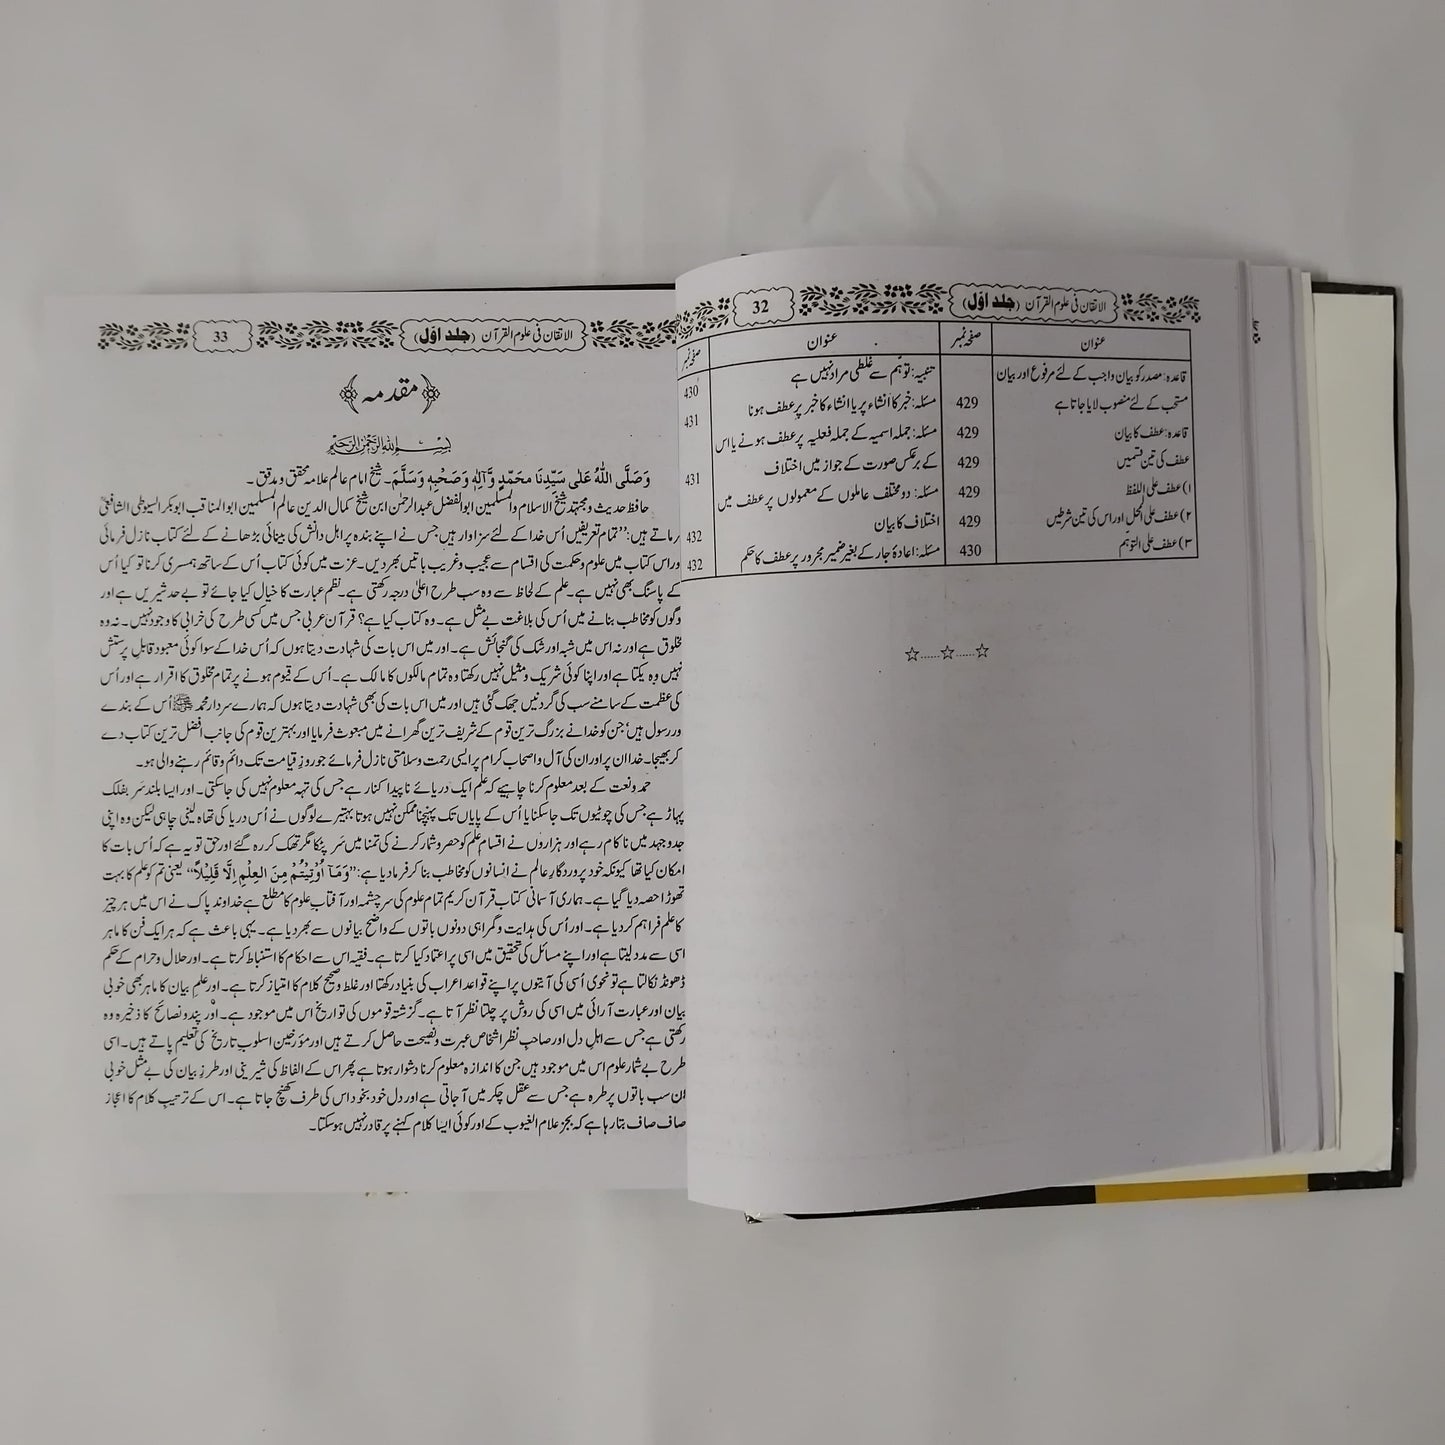 الاتقان فی علوم القرآن (جلد اوّل)
32
عنوان
صفحہ نمبر
عنوان
صفحہ نمبر
قاعدہ: مصدر کو بیان واجب کے لئے مرفوع اور بیان
مستحب کے لئے منصوب لایا جاتا ہے
429
قاعدہ: عطف کا بیان
429
عطف کی تین قسمیں
429
۱) عطف علی اللفظ
429
۲) عطف علی المحل اور اس کی تین شرطیں
429
۳) عطف علی التوہم
430
تنبیہ: توہّم سے غلطی مراد نہیں ہے
430
مسئلہ: خبر کا انشاء پر یا انشاء کا خبر پر عطف ہونا
431
مسئلہ: جملہ اسمیہ کے جملہ فعلیہ پر عطف ہونے یا اس
کے برعکس صورت کے جواز میں اختلاف
431
مسئلہ: دو مختلف عاملوں کے معمولوں پر عطف میں
اختلاف کا بیان
432
مسئلہ: اعادۂ جار کے بغیر ضمیر مجرور پر عطف کا حکم
432
☆......☆......☆
الاتقان فی علوم القرآن (جلد اوّل)
33
مقدمہ
بسم اللہ الرحمٰن الرحیم
وَصَلَّی اللّٰهُ عَلٰی سَیِّدِنَا محَمَّدٍ وَّآلِهٖ وَصَحْبِهٖ وَسَلَّمَ۔ شیخ امام عالم علامہ محقق و مدقق۔
حافظ حدیث و مجتہد شیخ الاسلام والمسلمین ابوالفضل عبدالرحمٰن ابن شیخ کمال الدین عالم المسلمین ابوالمناقب ابوبکر السیوطی الشافعیؒ
فرماتے ہیں: ”تمام تعریفیں اُس خدا کے لئے سزاوار ہیں جس نے اپنے بندہ پر اہل دانش کی بینائی بڑھانے کے لئے کتاب نازل فرمائی
اور اس کتاب میں علوم وحکمت کی اقسام سے عجیب وغریب باتیں بھر دیں۔ عزت میں کوئی کتاب اُس کے ساتھ ہمسری کرنا تو کیا اُس
کے پاسنگ بھی نہیں ہے۔ علم کے لحاظ سے وہ سب طرح اعلیٰ درجہ رکھتی ہے۔ نظم عبارت کا خیال کیا جائے تو بے حد شیریں ہے اور
لوگوں کو مخاطب بنانے میں اُس کی بلاغت بے مثل ہے۔ وہ کتاب کیا ہے؟ قرآن عربی جس میں کسی طرح کی خرابی کا وجود نہیں۔ نہ وہ
مخلوق ہے اور نہ اس میں شبہ اور شک کی گنجائش ہے۔ اور میں اس بات کی شہادت دیتا ہوں کہ اُس خدا کے سوا کوئی معبود قابلِ پرستش
نہیں وہ یکتا ہے اور اپنا کوئی شریک ومثیل نہیں رکھتا وہ تمام مالکوں کا مالک ہے۔ اُس کے قیوم ہونے پر تمام مخلوق کا اقرار ہے اور اُس
کی عظمت کے سامنے سب کی گردنیں جھک گئی ہیں اور میں اس بات کی بھی شہادت دیتا ہوں کہ ہمارے سردار محمد ﷺ اُس کے بندے
اور رسول ہیں جن کو خدا نے بزرگ ترین قوم کے شریف ترین گھرانے میں مبعوث فرمایا اور بہترین قوم کی جانب افضل ترین کتاب دے
کر بھیجا۔ خدا ان پر اور ان کی آل واصحاب کرام پر ایسی رحمت وسلامتی نازل فرمائے جو روزِ قیامت تک دائم وقائم رہنے والی ہو۔
حمد ونعت کے بعد معلوم کرنا چاہیے کہ علم ایک دریائے ناپیدا کنار ہے جس کی تہہ معلوم نہیں کی جاسکتی۔ اور ایسا بلند سَر بفلک
پہاڑ ہے جس کی چوٹیوں تک جا سکنا یا اُس کے پایاں تک پہنچنا ممکن نہیں ہوتا بہتیرے لوگوں نے اُس دریا کی تھاہ لینی چاہی لیکن وہ اپنی
جدوجہد میں ناکام رہے اور ہزاروں نے اقسامِ علم کو حصر وشمار کرنے کی تمنا میں سر پٹکا مگر تھک کر رہ گئے اور حق تو یہ ہے کہ اُس بات کا
امکان کیا تھا کیونکہ خود پروردگارِ عالم نے انسانوں کو مخاطب بنا کر فرما دیا ہے: ”وَمَآ اُوْتِیْتُمْ مِنَ العِلْمِ اِلَّا قَلِیْلًا“ یعنی تم کو علم کا بہت
تھوڑا حصہ دیا گیا ہے۔ ہماری آسمانی کتاب قرآن کریم تمام علوم کی سرچشمہ اور آفتابِ علوم کا مطلع ہے خداوند پاک نے اس میں ہر چیز
کا علم فراہم کر دیا ہے۔ اور اُس کی ہدایت وگمراہی دونوں باتوں کے واضح بیانوں سے بھر دیا ہے۔ یہی باعث ہے کہ ہر ایک فن کا ماہر
اسی سے مدد لیتا ہے اور اپنے مسائل کی تحقیق میں اسی پر اعتماد کیا کرتا ہے۔ فقیہ اس سے احکام کا استنباط کرتا ہے۔ اور حلال وحرام کے حکم
ڈھونڈ نکالتا ہے تو نحوی اُسی کی آیتوں پر اپنے قواعد اعراب کی بنیاد رکھتا اور غلط وصحیح کلام کا امتیاز کرتا ہے۔ اور علم بیان کا ماہر بھی خوبی
بیان اور عبارت آرائی میں اسی کی روش پر چلتا نظر آتا ہے۔ گزشتہ قوموں کی تواریخ اس میں موجود ہے۔ اور پند و نصائح کا ذخیرہ وہ
رکھتی ہے جس سے اہلِ دل اور صاحبِ نظر اشخاص عبرت ونصیحت حاصل کرتے ہیں اور مؤرخین اسلوب تاریخ کی تعلیم پاتے ہیں۔ اسی
طرح بے شمار علوم اس میں موجود ہیں جن کا اندازہ معلوم کرنا دشوار ہوتا ہے پھر اس کے الفاظ کی شیرینی اور طرزِ بیان کی بے مثل خوبی
ان سب باتوں پر طرہ ہے جس سے عقل چکر میں آجاتی ہے اور دل خود بخود اس کی طرف کھنچ جاتا ہے۔ اس کے ترتیبِ کلام کا اعجاز
صاف صاف بتا رہا ہے کہ بجز علام الغیوب کے اور کوئی ایسا کلام کہنے پر قادر نہیں ہوسکتا۔